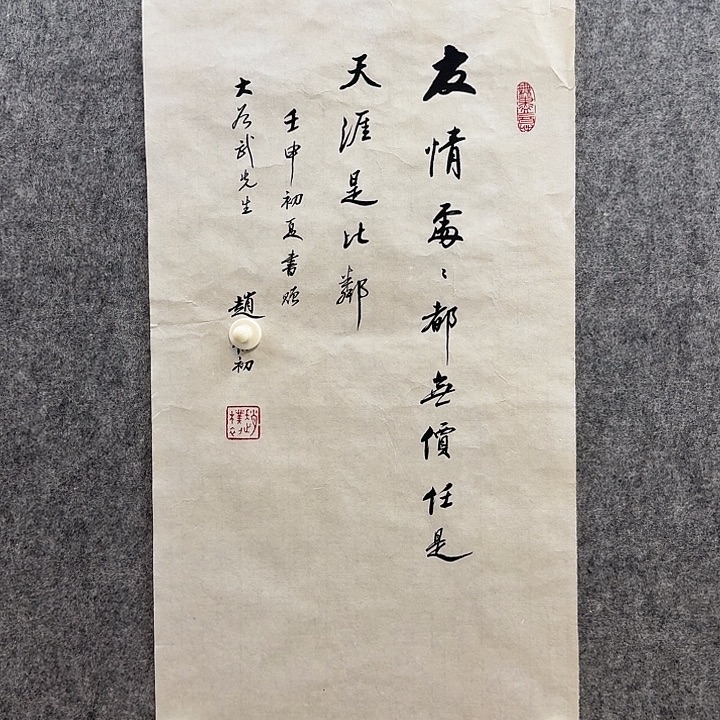 友情處〻都無價任是
天涯是比鄰
壬申初夏書贈
大為武先生
趙 初